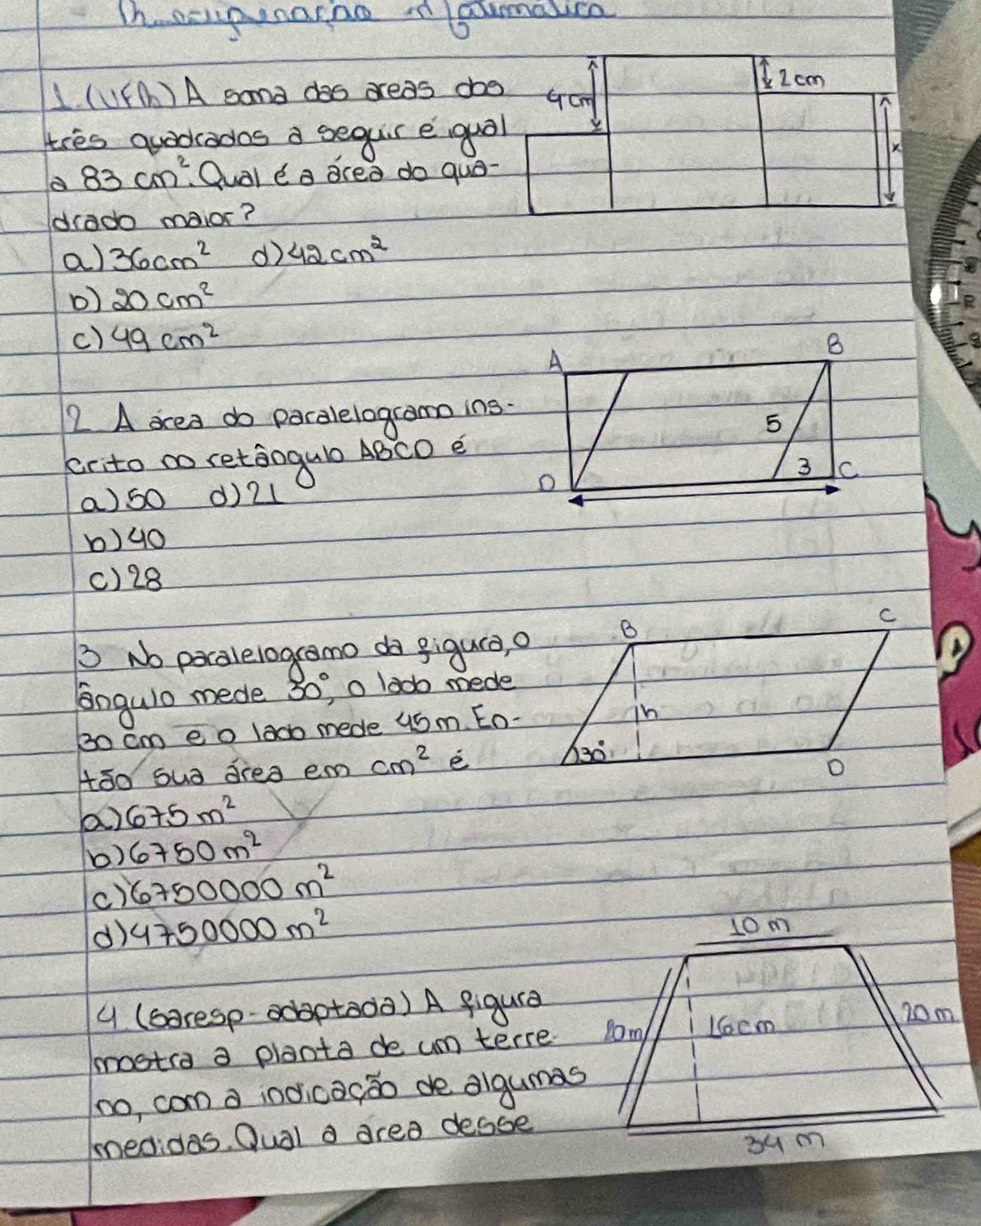 1. (UFRN) A soma das areas dos
três quadrados a seguir é igual
a 83 cm². Qual é a área do qua-
drado maior?
a) 36 cm² d) 42 cm²
b) 20 cm²
c) 49 cm²
4 cm
2 cm
x
2 A área do paralelogramo ins-
crito no retângulo ABCD é
a) 50 d) 21
b) 40
c) 28
A
B
5
3
C
D
3 No paralelogramo da figura, o
ângulo mede 30°, o lado mede
30 cm e o lado mede 45 m. En-
tão sua área em cm² é
a) 675 m²
b) 6750 m²
c) 6750000 m²
d) 4750000 m²
B
C
h
30°
D
4. (saresp-adaptada) A figura
mostra a planta de um terre-
no, com a indicação de algumas
medidas. Qual a area desse
10 m
20m
16cm
20m
34 m